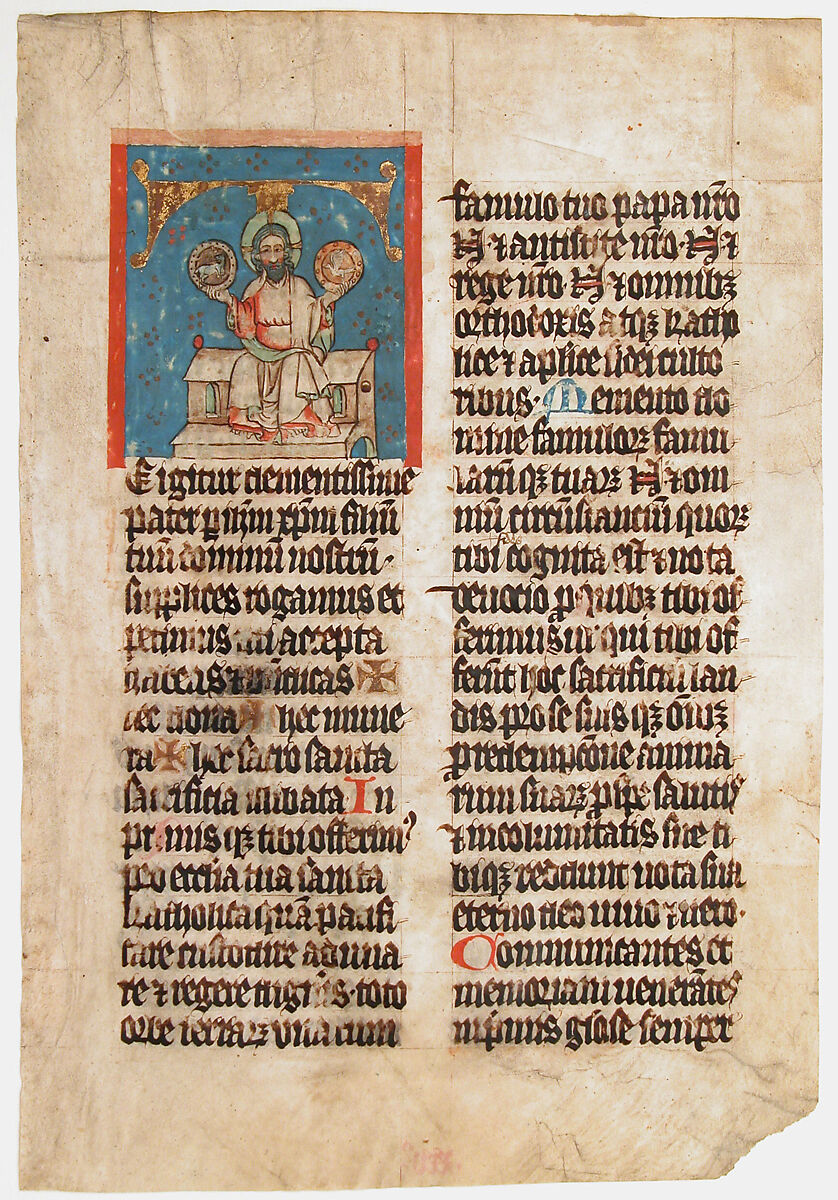 E igitur clementissime
pater ꝑ ihm̄ xp̄m filiū
tuū dominū nostrū·
supplices rogamus et
petimus uti accepta
habeas ⁊ bn̄dicas ✠
hec dona ✠ hec mune
ra ✠ hec sacro sancta
sacrificia inlibata In
primis qꝫ tibi offerimꝰ
pro ecclia tua sancta
katholica quā pacifi
care custodire aduna
re ⁊ regere digneris toto
orbe terrarꝫ vna cum
famulo tuo papa nr̄o
N ⁊ antistite nr̄o· N ⁊
rege nr̄o N ⁊ omnibꝫ
orthodoxis atqꝫ katho
lice ⁊ aplice fidei culto
ribus· Memento do
mine famulorꝫ famu
larū qꝫ tuarꝫ N ⁊ om
niū circūstanciū quorꝫ
tibi cognita est ⁊ nota
deuocio ꝓ quibꝫ tibi of
ferimus uꝉ qui tibi of
ferūt hoc sacrificiū lau
dis pro se suis qꝫ om̄ibꝫ
ꝓ redempcōne anima
rum suarꝫ ꝓ spe salutis
⁊ incolumitatis sue ti
biqꝫ reddunt uota sua
eterno deo uiuo ⁊ uero·
Communicantes et
memoriam uenerātes
inp̄mis gl̄ose semper